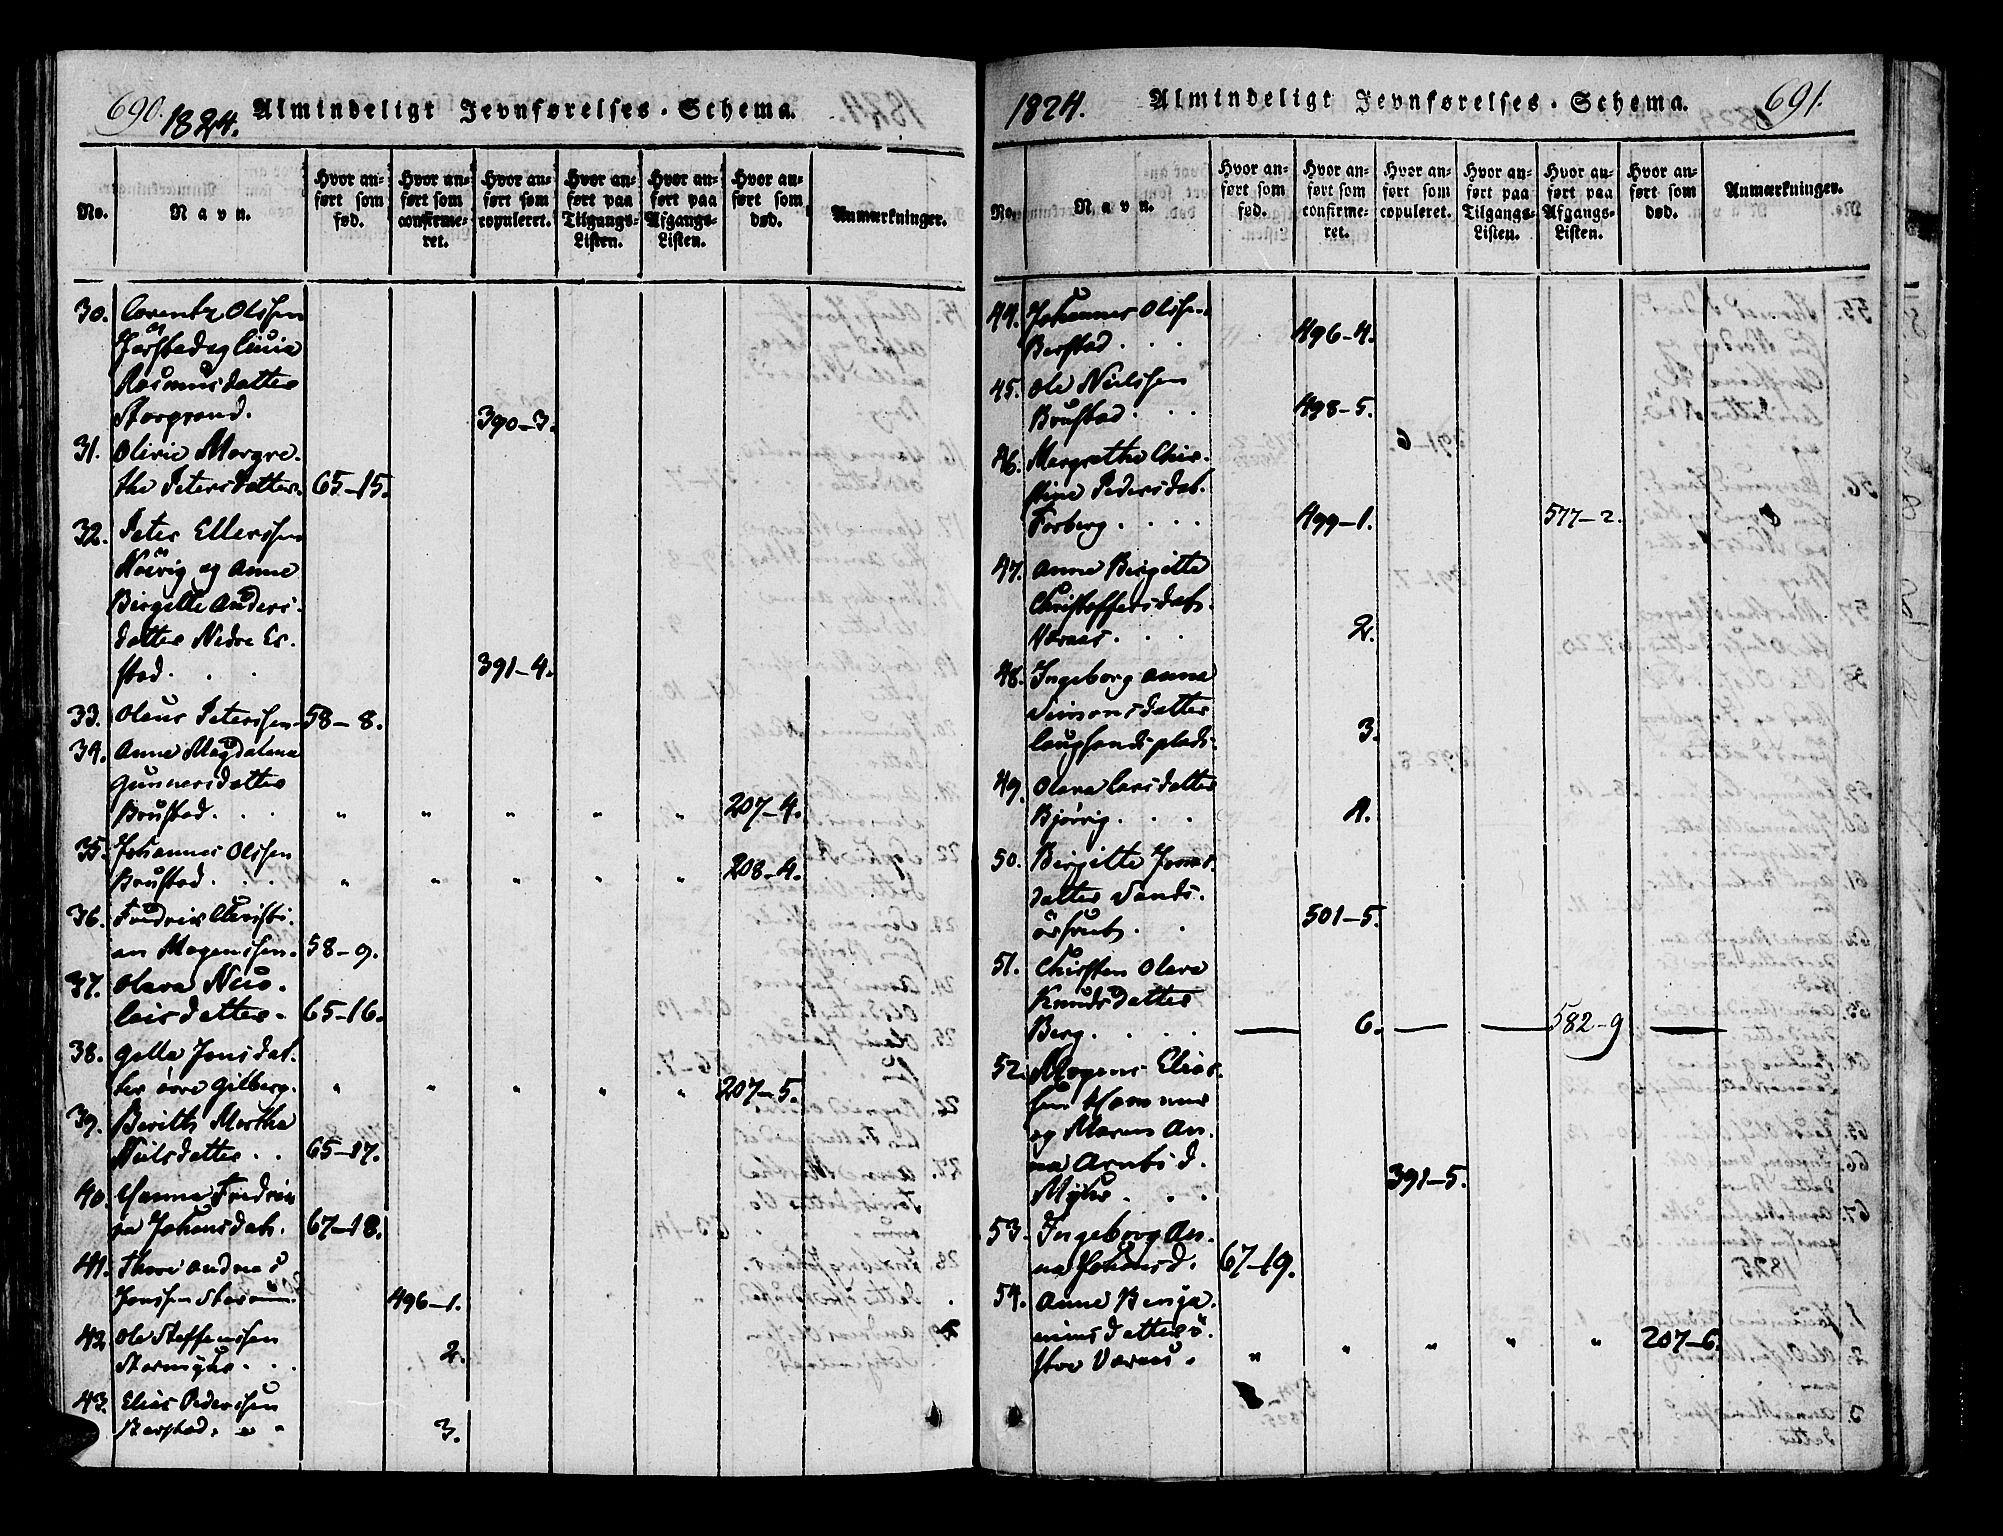 690. 1824. Almindeligt Jevnførelses-Schema.
No.
Navn.
Hvor an-
ført som
fød.
Hvor an-
ført som
confirme-
ret.
Hvor an-
ført som
copuleret.
Hvor an-
ført paa
Tilgangs-
Listen.
Hvor an-
ført paa
Afgangs-
Listen.
Hvor an-
ført som
død.
Anmærkninger.
30. Lorentz Olssen
og
Rasmusdatter
390-3.
31. Olivie Margre-
the Petersdatter. 65-15.
32. Peter Ellerssen
og Anne
Birgitte Anders-
datter Nedre Es-
stad. 391-4.
33. Olaus Peterssen. 58-8.
34. Anne Magdalena
Gunnersdatter
Brustad. . . " " " " " 207-4.
35. Johannes Olssen
Brustad. . . " " " " " 208-4.
36. Fredrik Christi-
an Mogenssen. 58-9.
37. Olava
datter. 65-16.
38. Jonsdat-
ter øvre Gilberg. " " " " " 207-5.
39. Berith Martha
Nielsdatter . . 65-17.
40. Hanna Fredrik-
ka Johansdat. 67-18.
41. Andreas
Jonssen 496-1.
42. Ole Steffenssen
Stormyhr. . . 2.
43. Elias Pederssen
Berstad. 3.
1824. Almindeligt Jevnførelses-Schema. 691.
No.
Navn.
Hvor an-
ført som
fød.
Hvor an-
ført som
confirme-
ret.
Hvor an-
ført som
copuleret.
Hvor an-
ført paa
Tilgangs-
Listen.
Hvor an-
ført paa
Afgangs-
Listen.
Hvor an-
ført som
død.
Anmærkninger.
44. Johannes Olssen
Berstad . . . 496-4.
45. Ole Nielssen
Brustad. . . 498-5.
46. Margrethe Chri-
stine Pedersdat.
Forberg. . . . 499-1. 577-2.
47. Anne Birgitte
Christoffersdat.
. . . 2.
48. Ingeborg Anna
Simonsdatter
3.
49. Olava Larsdatter
Bjørvig. . . 4.
50. Birgitte Jonas-
datter Sands-
501-5.
51. Olava
Knudsdatter
Berg. . . . 6. 582-9
52. Mogens Elias-
sen Hammer
og Maren An-
na Arntsd.
Myhr. . . 391-5.
53. Ingeborg An-
na Johansd. 67-19.
54. Anne Benja-
minsdatter Ö-
stre " " " " " 207-6.